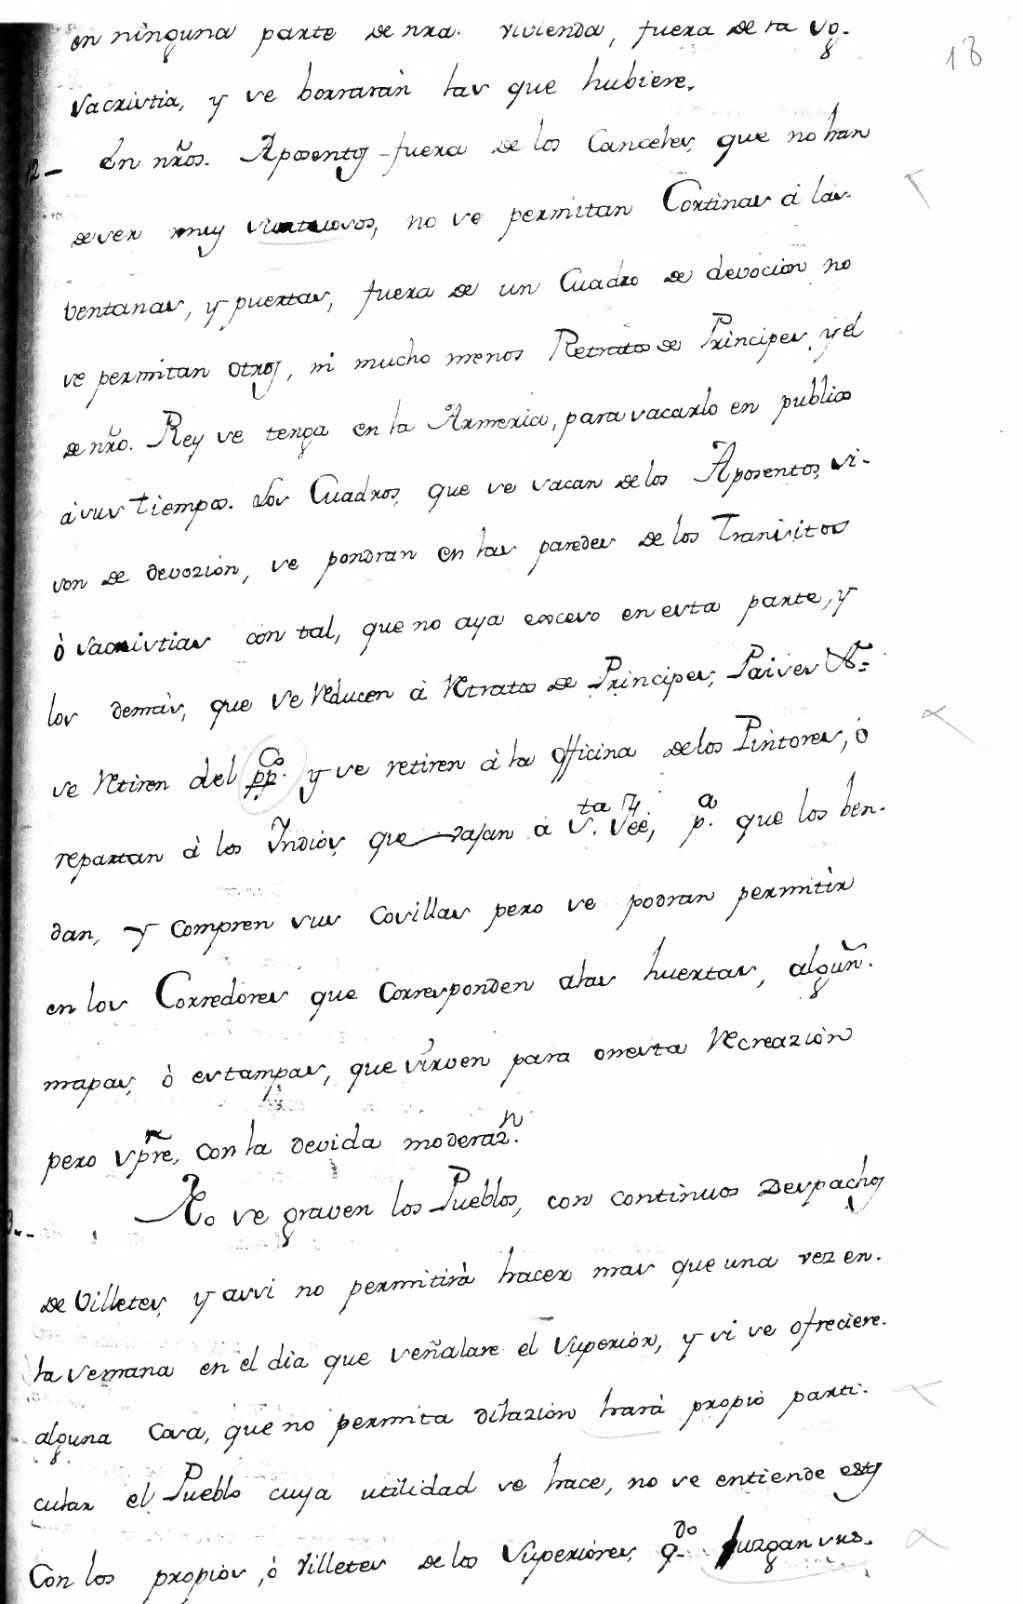 18
en ninguna parte de nra. vivienda, fuera de la
sacristia, y se borraràn las que hubiere.
2- En nr̃os. Aposentos fuera de los Canceles, que no han
de ser muy vistuosos, no se permitan Cortinas á las
ventanas, y puertas, fuera de un Cuadro de devocion no
se permitan otros, ni mucho menos Retratos de Principes, y el
de nr̃o. Rey se tenga en la Armeria, para sacarlo en publico
á sus tiempos. Los Cuadros, que se sacan de los Aposentos, si
son de devozión, se pondran en las paredes de los Transitos
ò sacristias con tal, que no aya exceso en esta parte, y
los demàs, que se reducen á retratos de Principes, Paises &=
se retiren del Co pp. y se retiren á la officina de los Pintores, ó
repartan á los Yndios, que vajan á Sta. Feé, pa. que los ben-
dan, y compren sus cosillas pero se podran permitir
en los Corredores que corresponden alas huertas, algun̄.
mapas, ò estampas, que sirven para onesta recreaziòn
pero spre, con la devida moderazn.
No se graven los Pueblos, con continuos Despachos
de Villetes, y assi no permitirà hacer mas que una vez en.
la semana en el dia que señalare el Superiór, y si se ofreciere.
alguna cosa, que no permita dilazión hará propió parti-
cular el Pueblo cuya utilidad se hace, no se entiende esto
Con los propiós, ó villetes de los Superióres, qdo juzgan